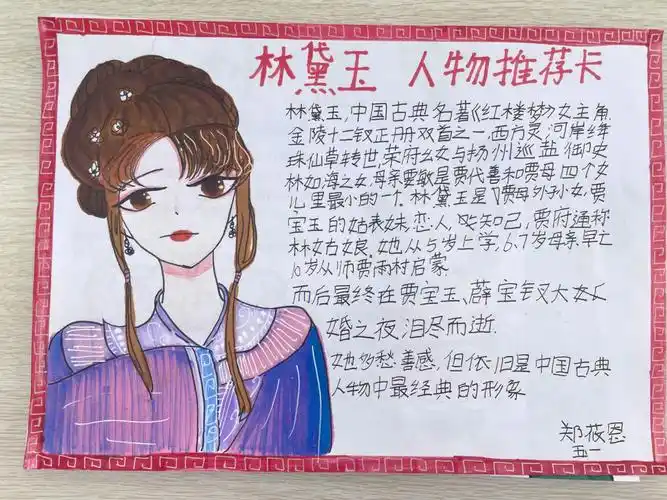 林黛玉 人物推荐卡
林黛玉,中国古典名著《红楼梦》女主角.
金陵十二钗正册双首之一,西方灵河岸绛
珠仙草转世,荣府幺女与扬州巡盐御史
林如海之女,母亲贾敏是贾代善和贾母四个女
儿里最小的一个.林黛玉是贾母外孙女,贾
宝玉的姑表妹,恋人,知己,贾府通称
林姑娘.她从5岁上学,6.7岁母亲早亡
10岁从师贾雨村启蒙.
而后最终在贾宝玉、薛宝钗大
婚之夜泪尽而逝.
她多愁善感,但依旧是中国古典
人物中最经典的形象
郑莜恩
五一